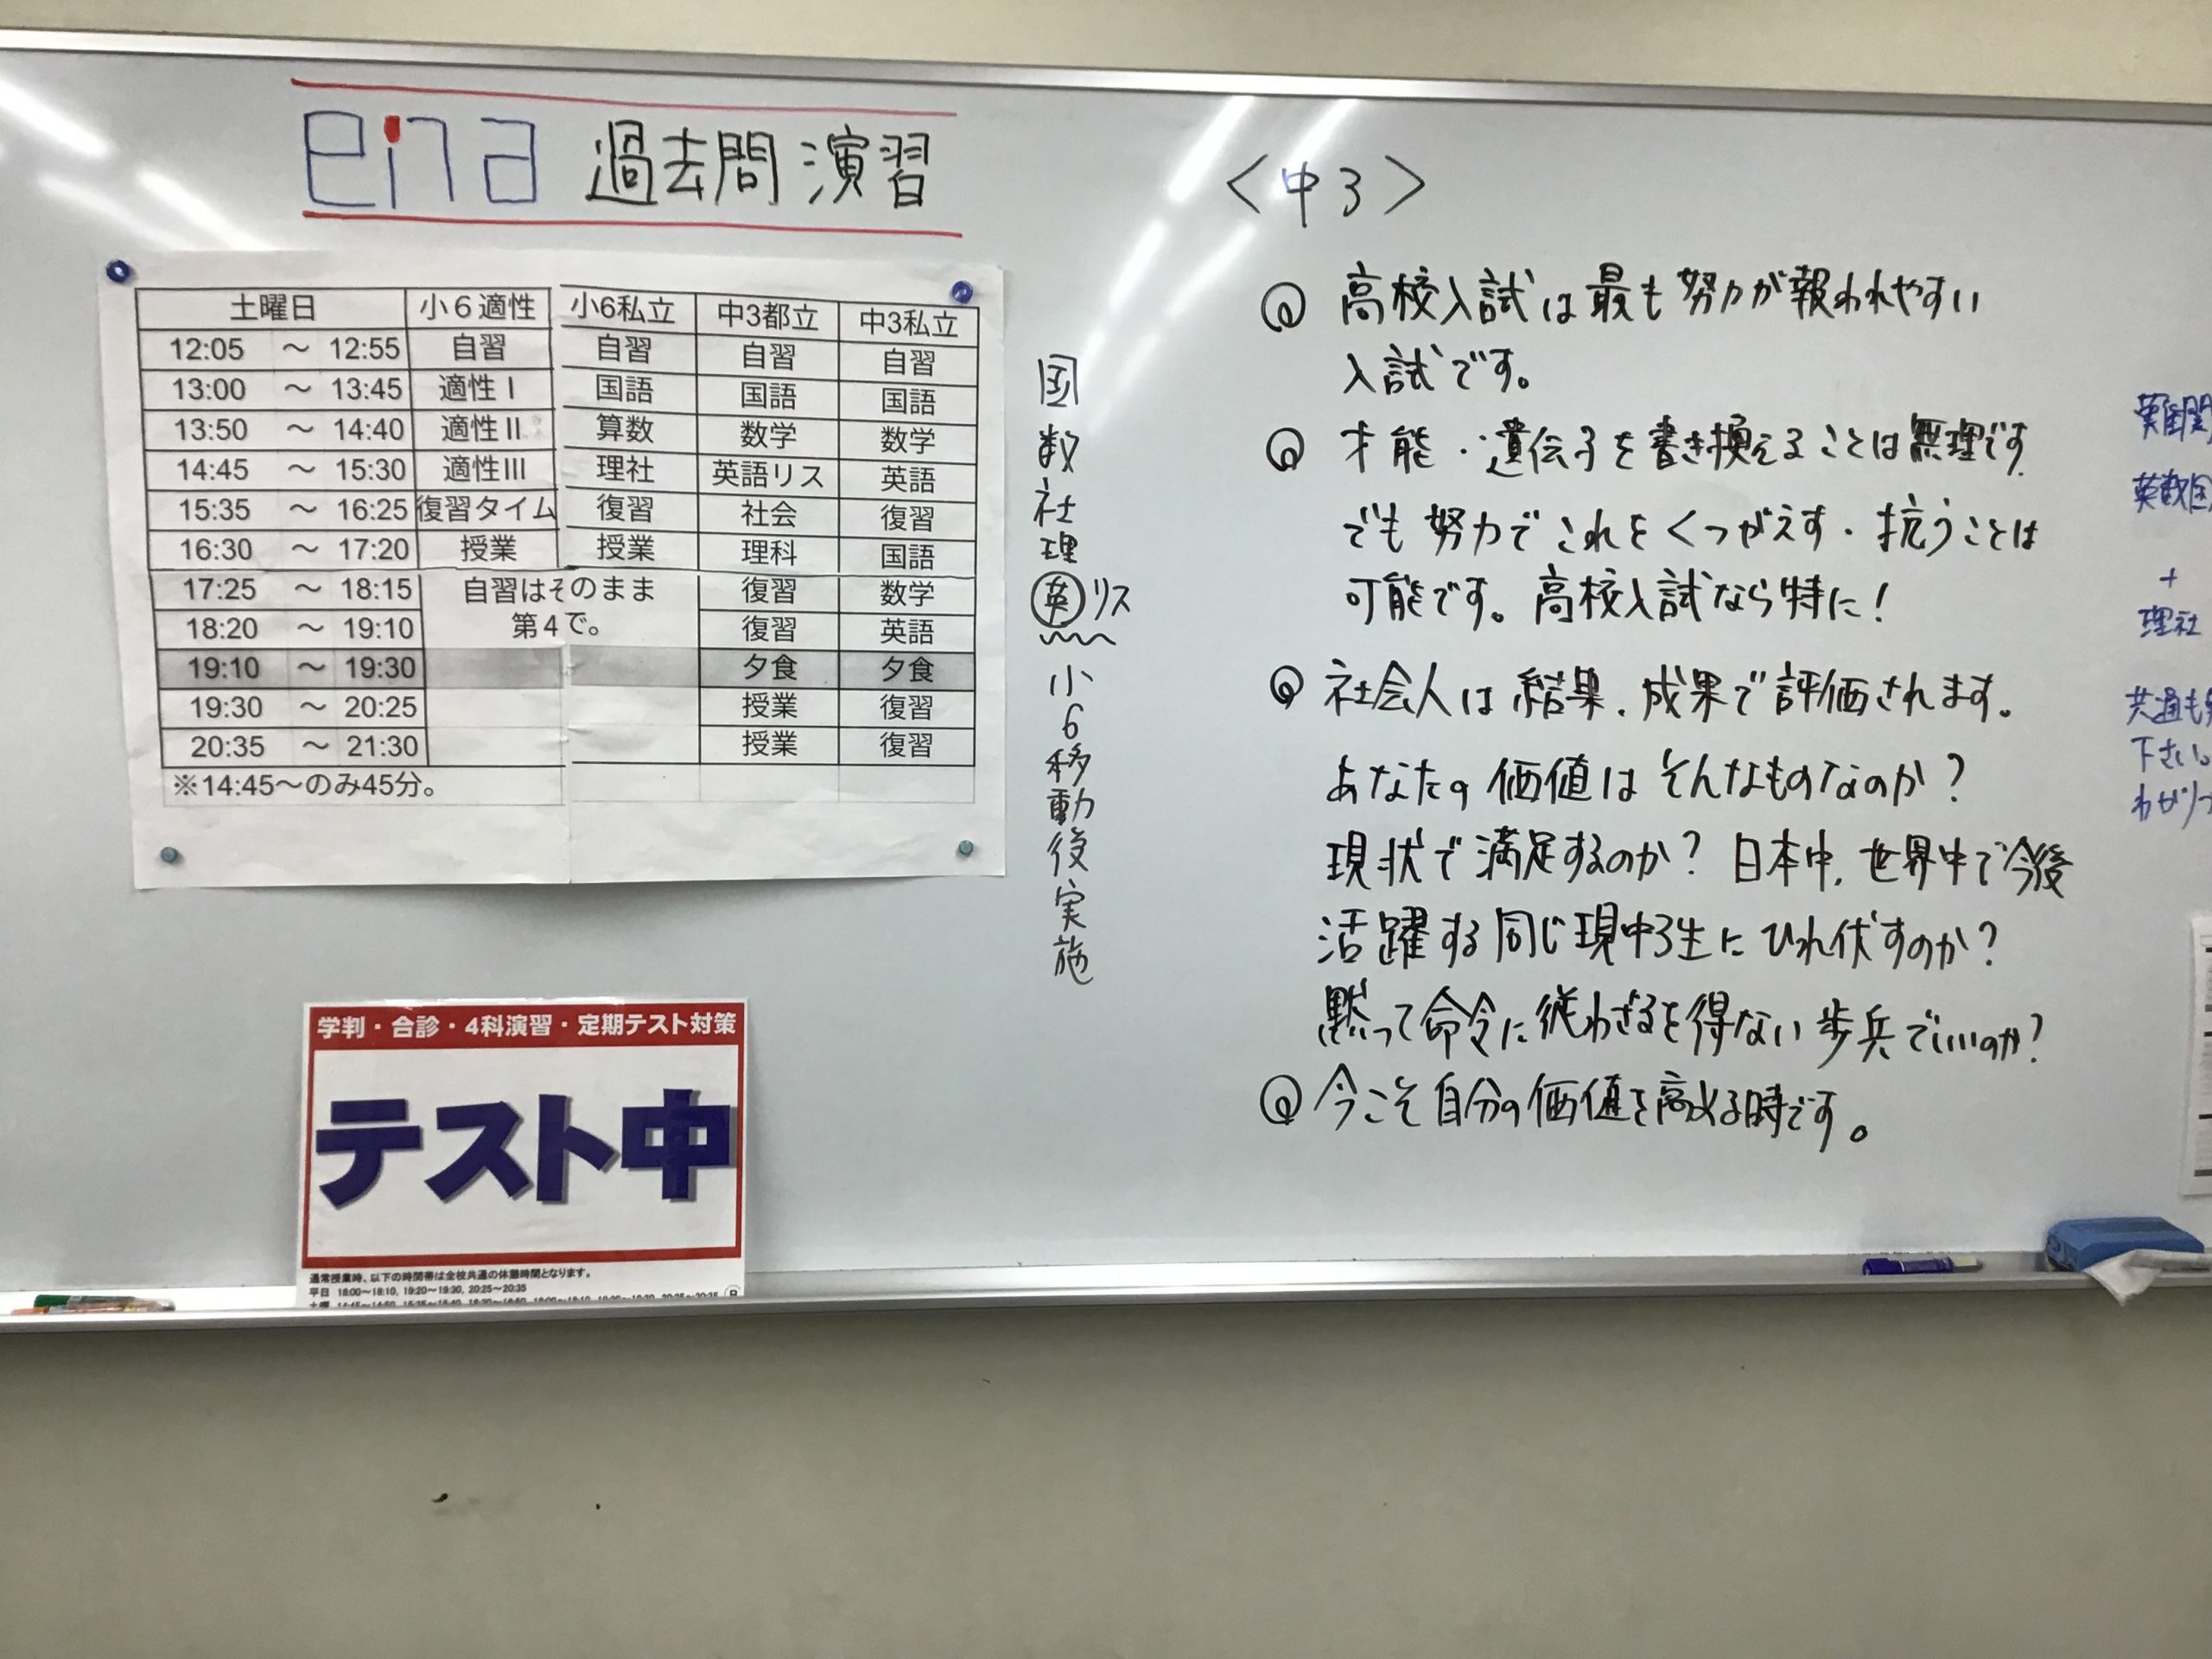 eina 過去問演習
土曜日 小6適性 小6私立 中3都立 中3私立
12:05 ～ 12:55 自習 自習 自習 自習
13:00 ～ 13:45 適性Ⅰ 国語 国語 国語
13:50 ～ 14:40 適性Ⅱ 算数 数学 数学
14:45 ～ 15:30 適性Ⅲ 理社 英語リス 英語
15:35 ～ 16:25 復習タイム 復習 社会 復習
16:30 ～ 17:20 授業 授業 理科 国語
17:25 ～ 18:15 自習はそのまま 復習 数学
18:20 ～ 19:10 第4で。 復習 英語
19:10 ～ 19:30 夕食 夕食
19:30 ～ 20:25 授業 復習
20:35 ～ 21:30 授業 復習
※14:45～のみ45分。
国数社理英リス小6移動後実施
学判・合診・4科演習・定期テスト対策
テスト中
通常授業時、以下の時間帯は全校共通の休憩時間となります。
平日 18:00～18:10, 19:20～19:30, 20:25～20:35
＜中3＞
高校入試は最も努力が報われやすい
入試です。
才能・遺伝子を書き換えることは無理です
でも努力でこれをくつがえす・抗うことは
可能です。高校入試なら特に!
社会人は結果、成果で評価されます。
あなたの価値はそんなものなのか?
現状で満足するのか? 日本中、世界中で今後
活躍する同じ現中3生にひれ伏すのか?
黙って命令に従わざるを得ない歩兵でいいのか?
今こそ自分の価値を高める時です。
難関
英数国
+
理社
共通も
下さい。